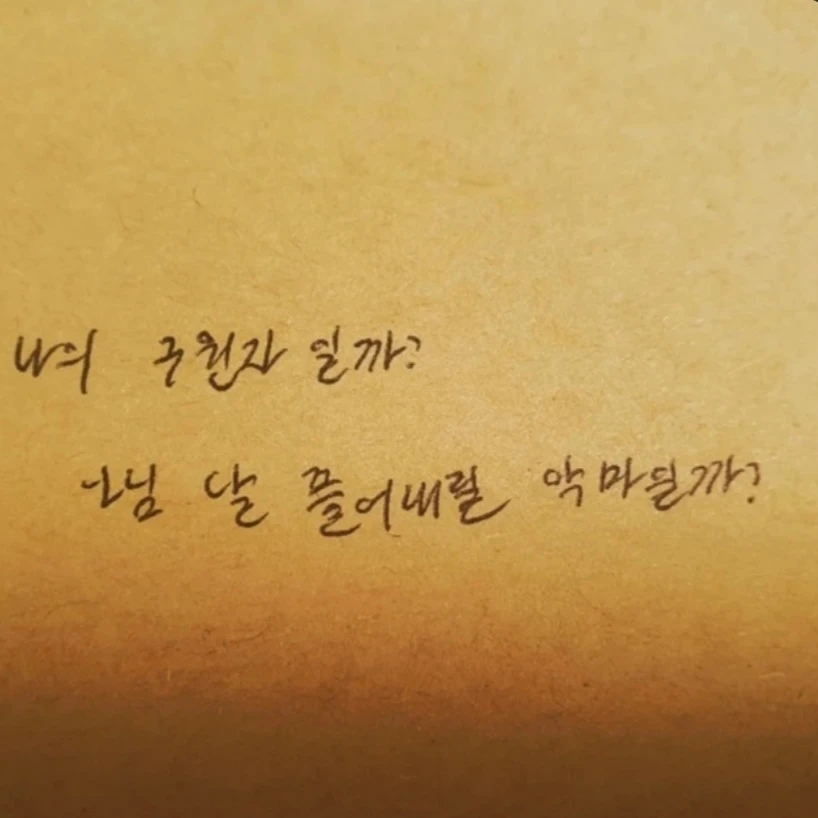 나의 구원자 일까?
그님 날 끌어내릴 악마일까?